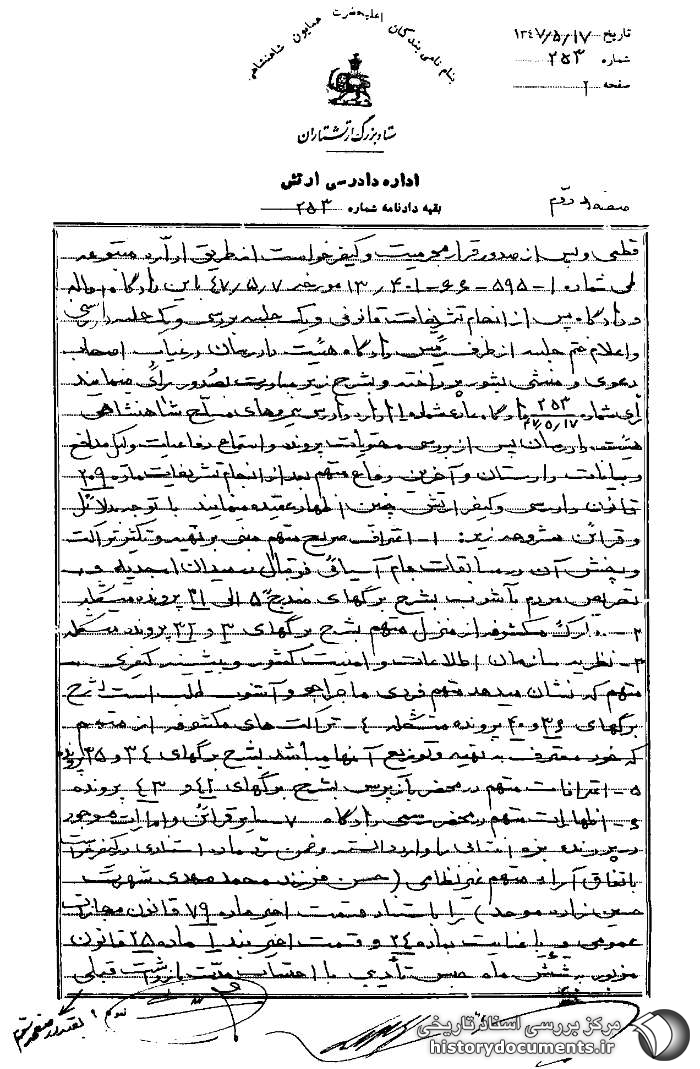 بنام نامی بندگان اعلیحضرت همایون شاهنشاهی
تاریخ ۱۳۴۷/۵/۱۷
شماره ۲۵۳
صفحه ۲
ستاد بزرگ ارتشتاران
اداره دادرسی ارتش
بقیه دادنامه شماره ۲۵۳
صفحه دوم
قطعی و پس از صدور قرار مجرمیت و کیفرخواست از طریق اداره متبوعه
طی شماره ۱-۵۹۵-۶۶-۴۰۱/۱۳ مورخه ۴۷/۵/۷ باین دادگاه احاله
و دادگاه پس از انجام تشریفات قانونی و یک جلسه بررسی و یک جلسه دادرسی
و اعلام ختم جلسه از طرف رئیس دادگاه هیئت دادرسان در غیاب اصحاب
دعوی و منشی بشور پرداخته و بشرح زیر مبادرت بصدور رأی مینمایند
رأی شماره ۲۵۳ ۴۷/۵/۱۷ دادگاه عادی شماره ۱ اداره دادرسی نیروهای مسلح شاهنشاهی
هیئت دادرسان پس از بررسی محتویات پرونده و استماع دفاعیات وکیل مدافع
و بیانات دادستان و آخرین دفاع متهم بعد از انجام تشریفات ماده ۲۰۹
قانون دادرسی و کیفر ارتش چنین اظهار عقیده مینمایند با توجه بدلائل
و قرائن مشروحه زیر: ۱- اعتراف صریح متهم مبنی بر تهیه و تکثیر تراکت
و پخش آن در مسابقات جام آسیائی فوتبال در میدان امجدیه و
تحریص مردم بآشوب بشرح برگهای ۵ الی ۳۱ پرونده متشکله
۲- مدارک مکشوفه از منزل متهم بشرح برگهای ۳ و ۳۲ پرونده متشکله
۳- نظریه سازمان اطلاعات و امنیت کشور و پیشینه کیفری
متهم که نشان میدهد متهم فردی ماجراجو و آشوب طلب است بشرح
برگهای ۳۶ و ۴۰ پرونده متشکله ۴- تراکت های مکشوفه از متهم
که خود معترف به تهیه و توزیع آنها میباشد بشرح برگهای ۳۴ و ۳۵ پرونده
۵- اعترافات متهم در محضر بازپرس بشرح برگهای ۴۲ و ۴۳ پرونده
۶- اظهارات متهم در محضر رسمی دادگاه ۷- سایر قرائن و امارات موجود
در پرونده بزه انتسابی را وارد دانسته و ضمن رد ماده استنادی در کیفرخواست
باتفاق آراء متهم غیرنظامی (حسن فرزند محمد مهدی شهرت
حسین زاده موحد) را باستناد قسمت اخیر ماده ۷۹ قانون مجازات
عمومی و با رعایت ماده ۲۴ و قسمت اخیر بند ۱ ماده ۲۵ قانون
مزبور بشش ماه حبس تأدیبی با احتساب مدت بازداشت قبلی
بقیه در صفحه سوم
مرکز بررسی اسناد تاریخی
historydocuments.ir